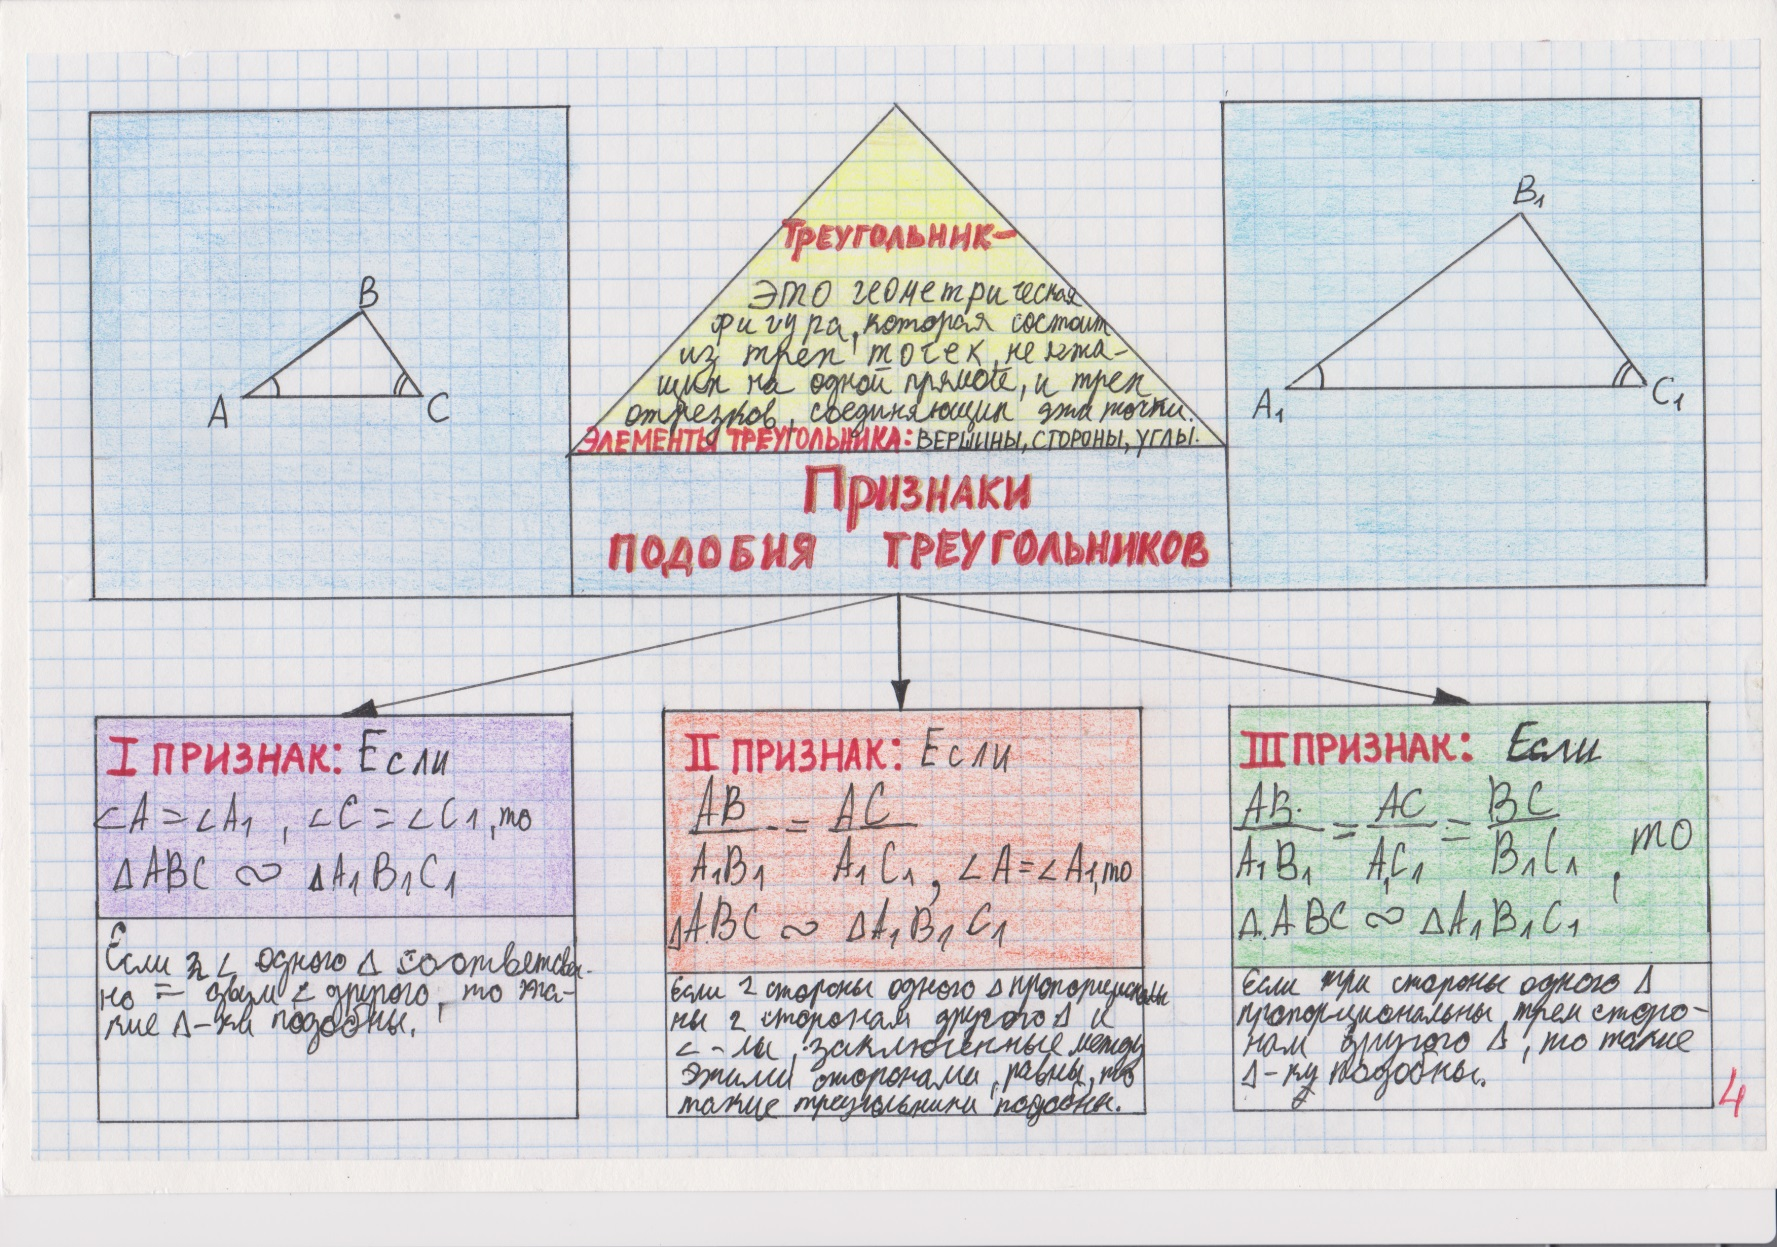 B
A
C
ТРЕУГОЛЬНИК-
это геометрическая
фигура, которая состоит
из трех точек, не лежа-
щих на одной прямой, и трех
отрезков, соединяющих эти точки.
ЭЛЕМЕНТЫ ТРЕУГОЛЬНИКА: ВЕРШИНЫ, СТОРОНЫ, УГЛЫ.
B₁
A₁
C₁
ПРИЗНАКИ
ПОДОБИЯ ТРЕУГОЛЬНИКОВ
I ПРИЗНАК: Если
∠A = ∠A₁, ∠C = ∠C₁, то
ΔABC ∾ ΔA₁B₁C₁
Если 2 ∠ одного Δ соответствен-
но = двум ∠ другого, то та-
кие Δ-ки подобны.
II ПРИЗНАК: Если
AB = AC
A₁B₁ A₁C₁, ∠A = ∠A₁, то
ΔABC ∾ ΔA₁B₁C₁
Если 2 стороны одного Δ пропорциональны
ны 2 сторонам другого Δ и
∠-лы, заключенные между
этими сторонами, равны, то
такие треугольники подобны.
III ПРИЗНАК: Если
AB = AC = BC
A₁B₁ A₁C₁ B₁C₁, то
Δ ABC ∾ ΔA₁B₁C₁
Если три стороны одного Δ
пропорциональны трем сторо-
нам другого Δ, то такие
Δ-ки подобны.
4